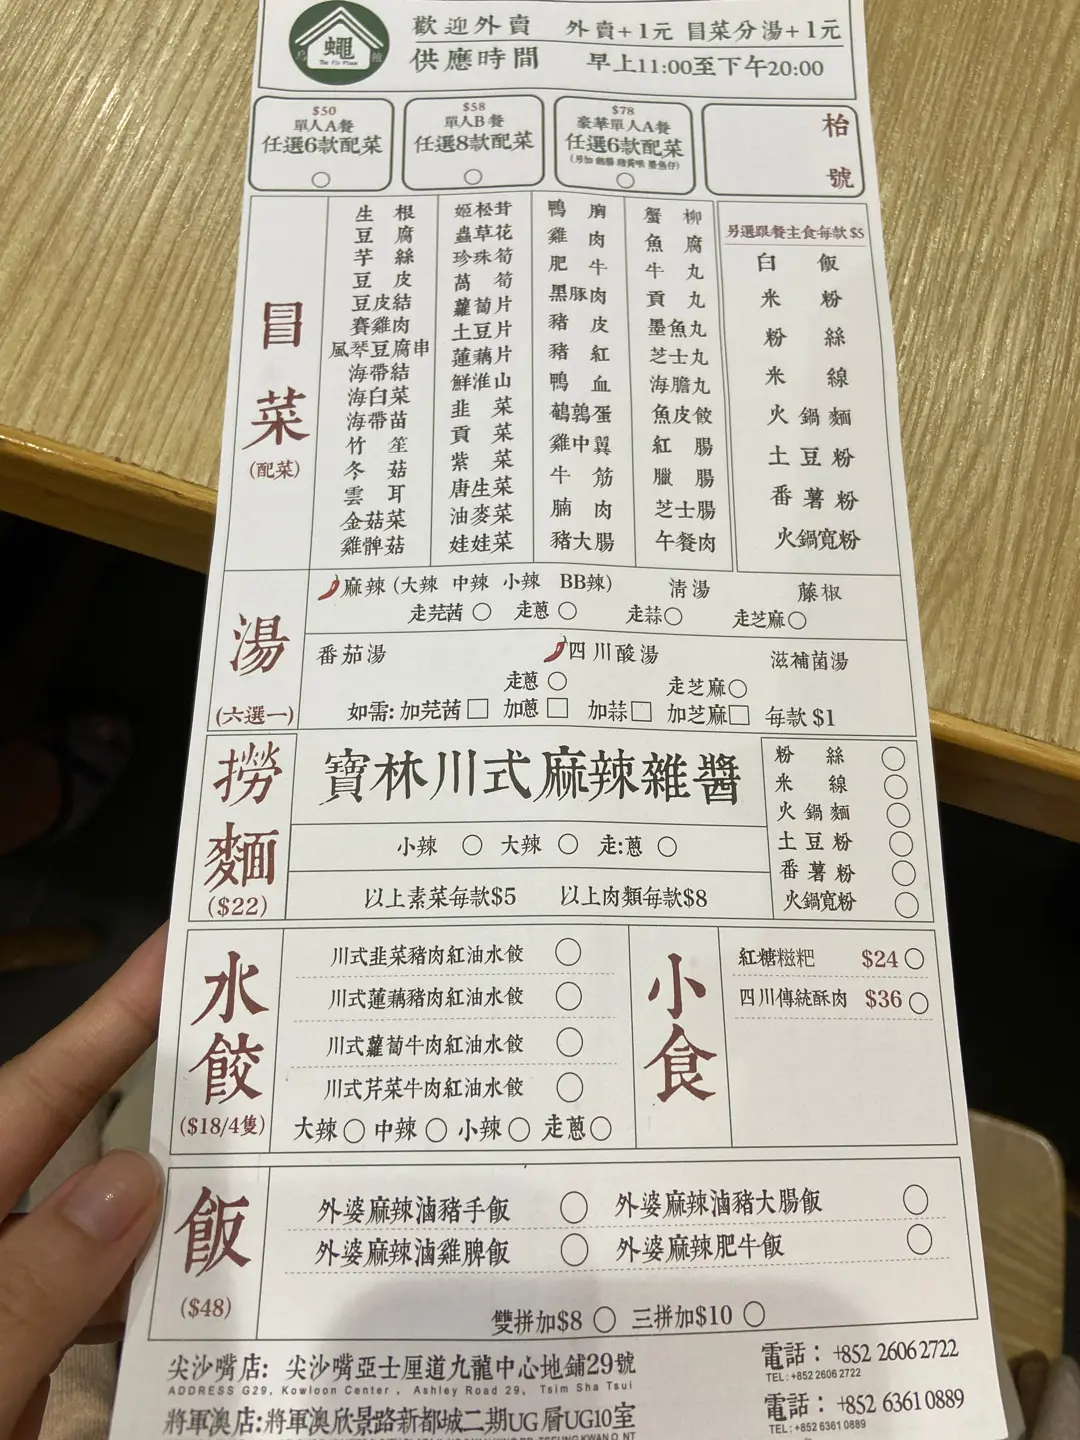 蠅
The Fly Place
歡迎外賣 外賣+1元 冒菜分湯+1元
供應時間 早上11:00至下午20:00
$50
單人A餐
任選6款配菜
$58
單人B餐
任選8款配菜
$78
豪華單人A餐
任選6款配菜
枱號
冒菜
(配菜)
生根
豆腐
芋絲
豆皮
豆皮結
賽雞肉
風琴豆腐串
海帶結
海白菜
海帶苗
竹笙
冬菇
雲耳
金菇菜
雞髀菇
姬松茸
蟲草花
珍珠筍
萵筍
蘿蔔片
土豆片
蓮藕片
鮮淮山
韭菜
貢菜
紫菜
唐生菜
油麥菜
娃娃菜
鴨胸
雞肉
肥牛
黑豚肉
豬皮
豬紅
鴨血
鵪鶉蛋
雞中翼
牛筋
腩肉
豬大腸
蟹柳
魚腐
牛丸
貢丸
墨魚丸
芝士丸
海膽丸
魚皮餃
紅腸
臘腸
芝士腸
午餐肉
另選跟餐主食每款$5
白飯
米粉
粉絲
米線
火鍋麵
土豆粉
番薯粉
火鍋寬粉
湯
(六選一)
麻辣 (大辣 中辣 小辣 BB辣) 清湯 藤椒
走芫茜 走蔥 走蒜 走芝麻
番茄湯 四川酸湯 滋補菌湯
走蔥 走芝麻
如需: 加芫茜 加蔥 加蒜 加芝麻 每款 $1
撈麵
($22)
寶林川式麻辣雜醬
小辣 大辣 走:蔥
以上素菜每款$5 以上肉類每款$8
粉絲
米線
火鍋麵
土豆粉
番薯粉
火鍋寬粉
水餃
($18/4隻)
川式韭菜豬肉紅油水餃
川式蓮藕豬肉紅油水餃
川式蘿蔔牛肉紅油水餃
川式芹菜牛肉紅油水餃
大辣 中辣 小辣 走蔥
小食
紅糖糍粑 $24
四川傳統酥肉 $36
飯
($48)
外婆麻辣滷豬手飯 外婆麻辣滷豬大腸飯
外婆麻辣滷雞脾飯 外婆麻辣肥牛飯
雙拼加$8 三拼加$10
尖沙嘴店: 尖沙嘴亞士厘道九龍中心地鋪29號 電話：+852 2606 2722
ADDRESS G29, Kowloon Center, Ashley Road 29, Tsim Sha Tsui TEL:+852 2606 2722
將軍澳店:將軍澳欣景路新都城二期UG層UG10室 電話：+852 6361 0889
TEL:+852 6361 0889